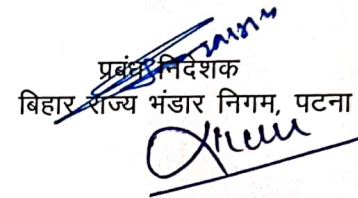 प्रबंध निदेशक
बिहार राज्य भंडार निगम, पटना